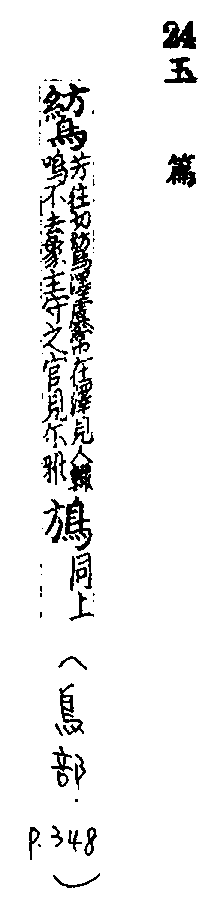 24 玉篇
鶭
芳往切鶭澤虞常在澤見人輒
鳴不去象主守之官見尓雅
鴋
同上
(鳥部. p.348)